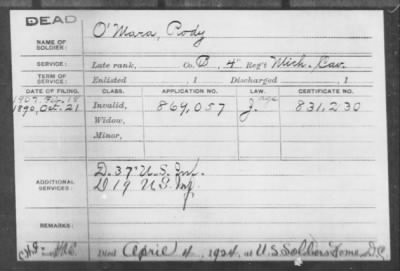 DEAD
NAME OF SOLDIER: O'Mara, Cody
SERVICE: Late rank, Co. B, 4" Reg't Mich. Cav.
TERM OF SERVICE: Enlisted , 1 Discharged , 1
DATE OF FILING. CLASS. APPLICATION NO. LAW. CERTIFICATE NO.
1907, Feb. 18 age
1890, Oct. 21 Invalid, 869,057 J. 831,230
Widow,
Minor,
D. 37" U.S. Inf.
ADDITIONAL SERVICES: D 19 U.S. Inf.
REMARKS:
Died April 4, 1924, at U.S. Soldier Home, DC